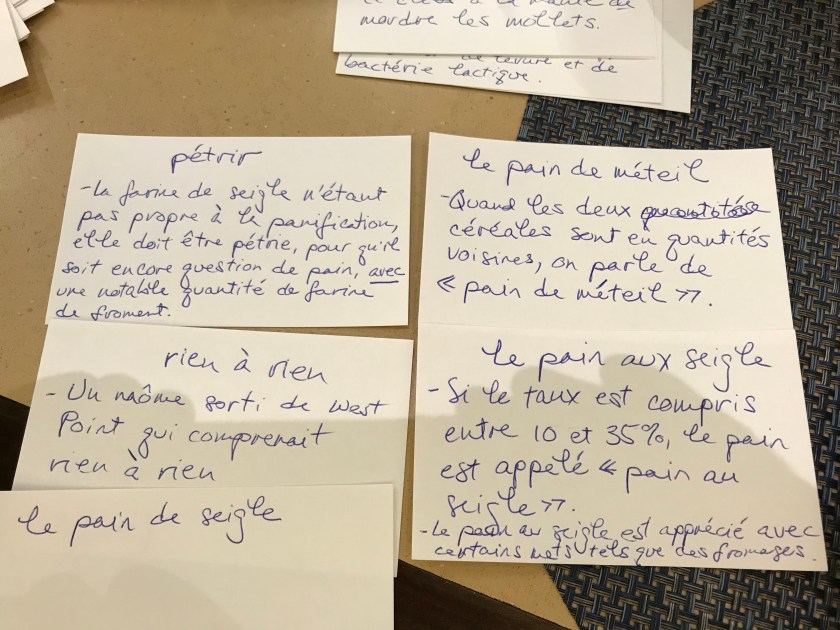 mordre les mollets.
levure et de
bactérie lactique.
pétrir
- La farine de seigle n'étant
pas propre à la panification,
elle doit être pétrie, pour qu'il
soit encore question de pain, avec
une notable quantité de farine
de froment.
le pain de méteil
- Quand les deux
céréales sont en quantités
voisines, on parle de
« pain de méteil ».
rien à rien
- Un naôme sorti de West
Point qui comprenait
rien à rien
le pain aux seigle
- Si le taux est compris
entre 10 et 35%, le pain
est appélé « pain au
seigle ».
- Le pain au seigle est apprécié avec
certains mets tels que des fromages.
le pain de seigle